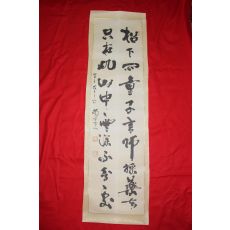 松下問童子言師採藥去
只在此山中雲深不知處